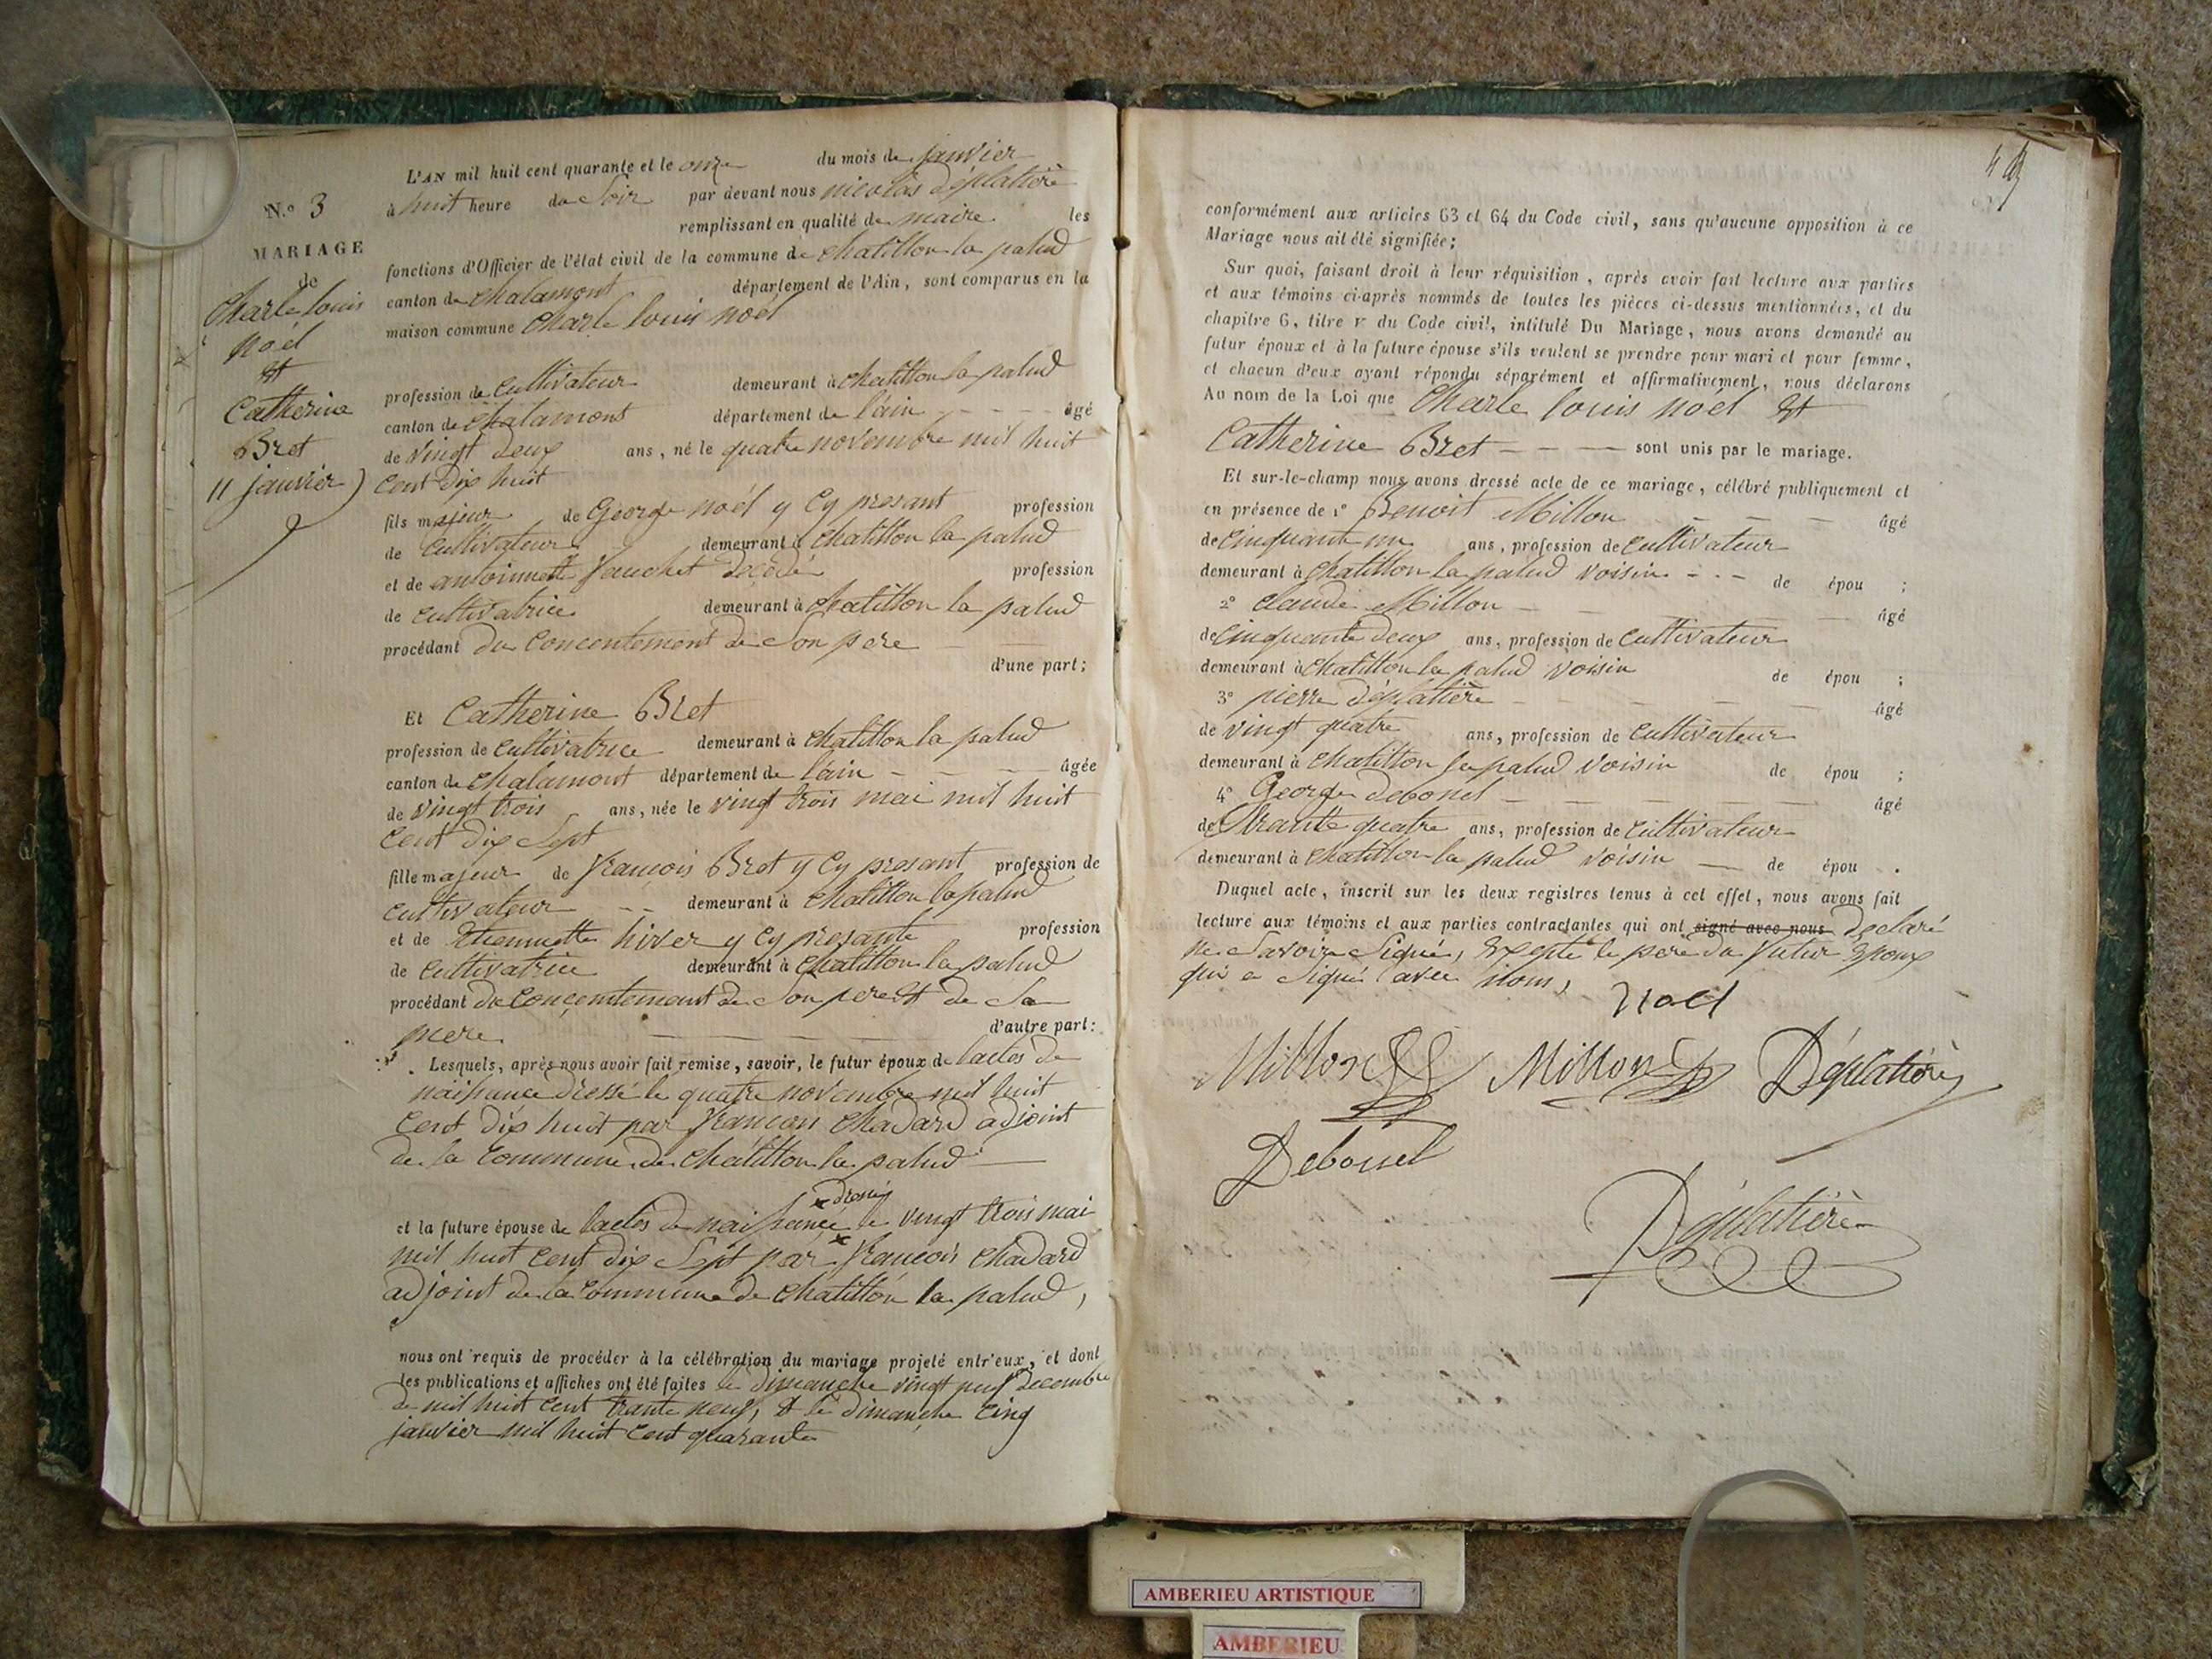 N.º 3
MARIAGE
de
Charle louis
noél
et
Catherine
Bret
11 janvier
L'AN mil huit cent quarante et le onze du mois de janvier
à huit heure du Soir par devant nous nicolas Déplatière
remplissant en qualité de maire les
fonctions d'Officier de l'état civil de la commune de chatillon la palud
canton de chalamont département de l'Ain, sont comparus en la
maison commune Charle louis noél
profession de Cultivateur demeurant à chatillon la palud
canton de chalamont département de l'ain âgé
de vingt deux ans, né le quatre novembre mil huit
cent dix huit
fils majeur de George noél y Cy presant profession
de Cultivateur demeurant à chatillon la palud
et de antoinette décédé profession
de cultivatrice demeurant à chatillon la palud
procédant du Concentement de Son pere
d'une part;
Et Catherine Bret
profession de cultivatrice demeurant à chatillon la palud
canton de chalamont département de l'ain âgée
de vingt trois ans, née le vingt trois mai mil huit
cent dix Sept
fille majeur de françois Bret y Cy presant profession de
cultivateur demeurant à chatillon la palud
et de Etiennette hiver y Cy presante profession
de cultivatrice demeurant à chatillon la palud
procédant du Concentement de Son pere et de Sa
mere d'autre part:
Lesquels, après nous avoir fait remise, savoir, le futur époux de lactes de
naissance dressé le quatre novembre mil huit
Cent dix huit par françois chadard adjoint
de la Commune de Chatillon la palud
dressé
et la future épouse de lactes de naissance le vingt trois mai
mil huit cent dix Sept par françois chadard
adjoint de la Commune de chatillon la palud,
nous ont requis de procéder à la célébration du mariage projeté entr'eux, et dont
les publications et affiches ont été faites le dimanche vingt neuf decembre
de mil huit cent trante neuf, et le dimanche cinq
janvier mil huit cent quarante
conformément aux articles 63 et 64 du Code civil, sans qu'aucune opposition à ce
Mariage nous ait été signifiée;
Sur quoi, faisant droit à leur réquisition, après avoir fait lecture aux parties
et aux témoins ci-après nommés de toutes les pièces ci-dessus mentionnées, et du
chapitre 6, titre V du Code civil, intitulé Du Mariage, nous avons demandé au
futur époux et à la future épouse s'ils veulent se prendre pour mari et pour femme,
et chacun d'eux ayant répondu séparément et affirmativement, nous déclarons
Au nom de la Loi que Charle louis noél et
Catherine Bret sont unis par le mariage.
Et sur-le-champ nous avons dressé acte de ce mariage, célébré publiquement et
en présence de 1º Benoit Millon âgé
de Cinquante un ans, profession de cultivateur
demeurant à chatillon la palud voisin de épou ;
2º Claude Millon âgé
de Cinquante deux ans, profession de cultivateur
demeurant à chatillon la palud voisin de épou ;
3º pierre Déplatière âgé
de vingt quatre ans, profession de cultivateur
demeurant à chatillon la palud voisin de épou ;
4º George debonel âgé
de trante quatre ans, profession de cultivateur
demeurant à chatillon la palud voisin de épou .
Duquel acte, inscrit sur les deux registres tenus à cet effet, nous avons fait
lecture aux témoins et aux parties contractantes qui ont signé avec nous Declaré
ne Savoir Signé, Excepté le pere du futur Epoux
qui a Signé avec nous,
Noel
Millon Millon Déplatière
Debonel
Déplatière
AMBERIEU ARTISTIQUE
AMBERIEU